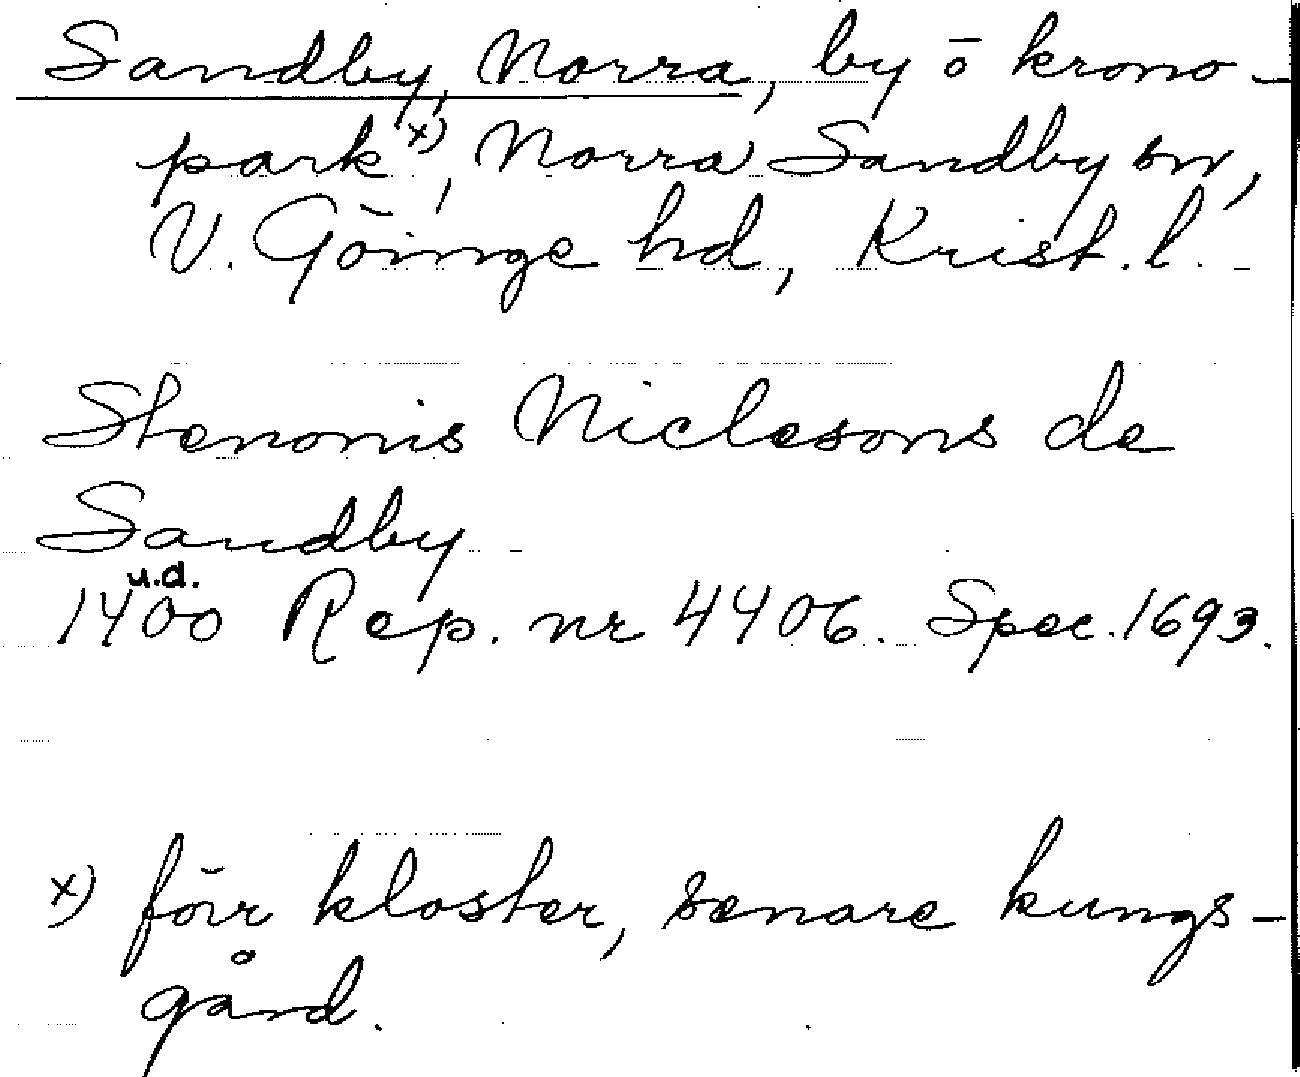 Sandby, Norra, by o krono-
park x), Norra Sandby sn,
V. Göinge hd, Krist. l.
Stenonis Niclesons de
Sandby
u.d.
1400 Rep. nr 4406. Spec. 1693.
x) förr kloster, senare kungs-
gård.